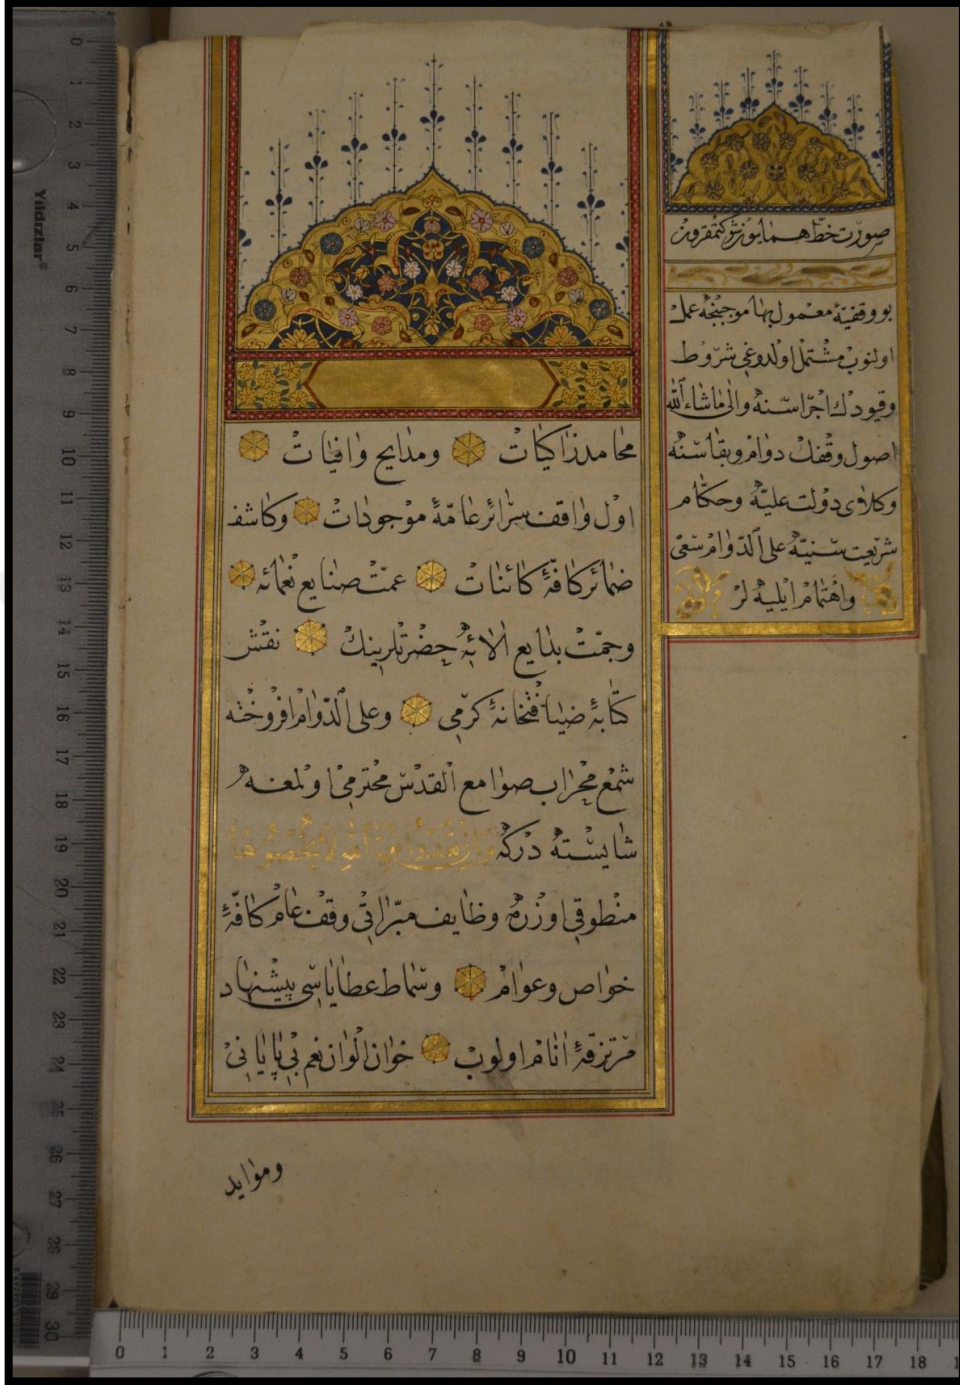 صورت خط همايون شوكتمقرون
بو وقفيۀ معمول بها موجبنجه عمل
اولنوب مشتمل اولدوغى شروط
وقيودك اجراسنه والى ما شاء الله
اصول وقفك دوام وبقاسنه
وكلاى دولت عليه وحكام
شريعت سنيه على الدوام سعى
واهتمام ايليه لر
محامد زاكيات ومدايح وافيات
اول واقف سرائر عامۀ موجودات وكاشف
ضمائر كافۀ كائنات عمت صنايع نعمائه
وجمت بدايع الائه حضرتلرينك نقش
كتابۀ ضيافتخانۀ كرمى وعلى الدوام افروخته
شمع محراب صوامع القدس محترمى ولمعه
شايسته دركه وان تعدوا نعمة الله لا تحصوها
منطوقى اوزره وظايف مبراتى وقف عام كافۀ
خواص وعوام وسماط عطاياسى پيشنهاد
مرتزقۀ انام اولوب خوان الوان نعم بى پايانى
وموايد
Yıldızlar
0 1 2 3 4 5 6 7 8 9 10 11 12 13 14 15 16 17 18 19 20 21 22 23 24 25 26 27 28 29 30
0 1 2 3 4 5 6 7 8 9 10 11 12 13 14 15 16 17 18